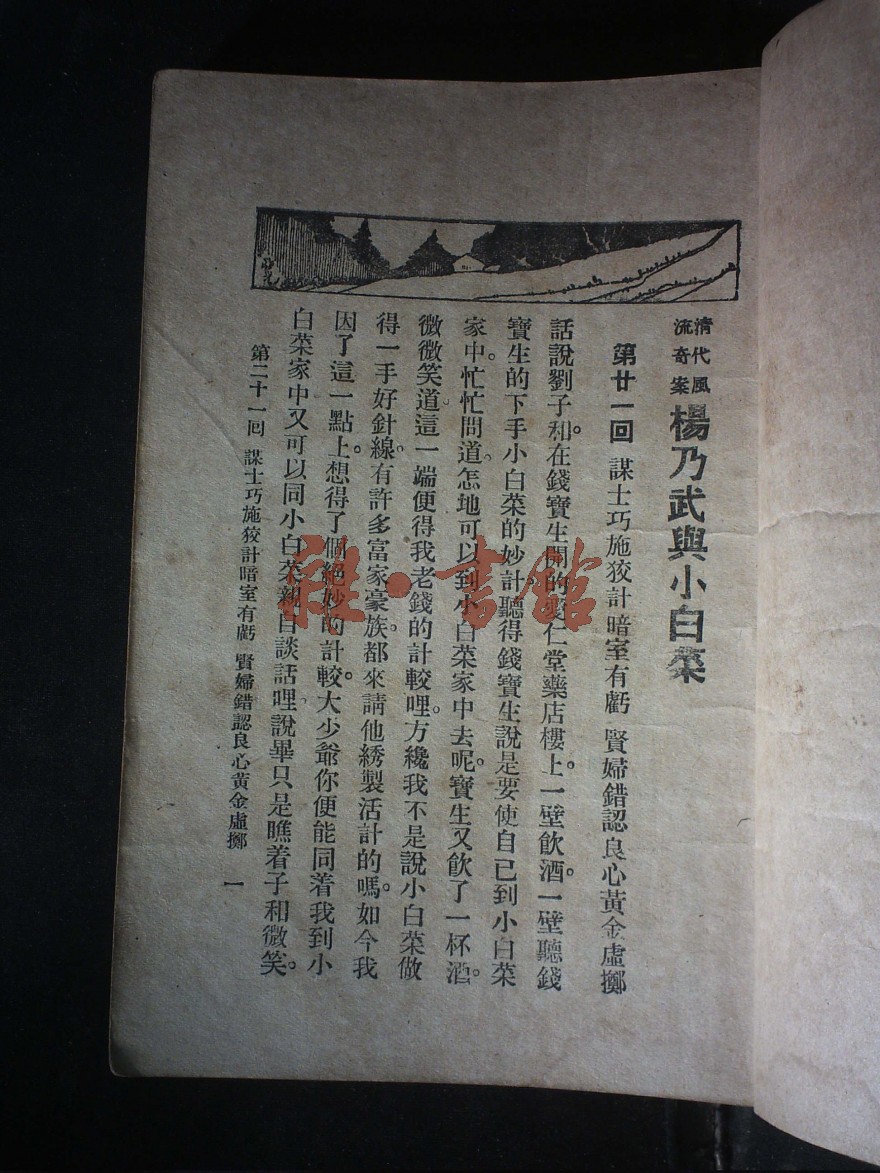 清代風
流奇案
楊乃武與小白菜
第廿一回 謀士巧施狡計暗室有虧 賢婦錯認良心黃金虛擲
話說劉子和。在錢寶生開的愛仁堂藥店樓上。一壁飲酒。一壁聽錢
寶生的下手小白菜的妙計。聽得錢寶生說是要使自己到小白菜
家中。忙忙問道。怎地可以到小白菜家中去呢。寶生又飲了一杯酒。
微微笑道。這一端便得我老錢的計較哩。方纔我不是說小白菜做
得一手好針線。有許多富家豪族。都來請他綉製活計的嗎。如今我
因了這一點上。想得了個絕妙的計較。大少爺你便能同着我到小
白菜家中。又可以同小白菜親自談話哩。說畢只是瞧着子和微笑。
第二十一回 謀士巧施狡計暗室有虧 賢婦錯認良心黃金虛擲
一
雅·書館